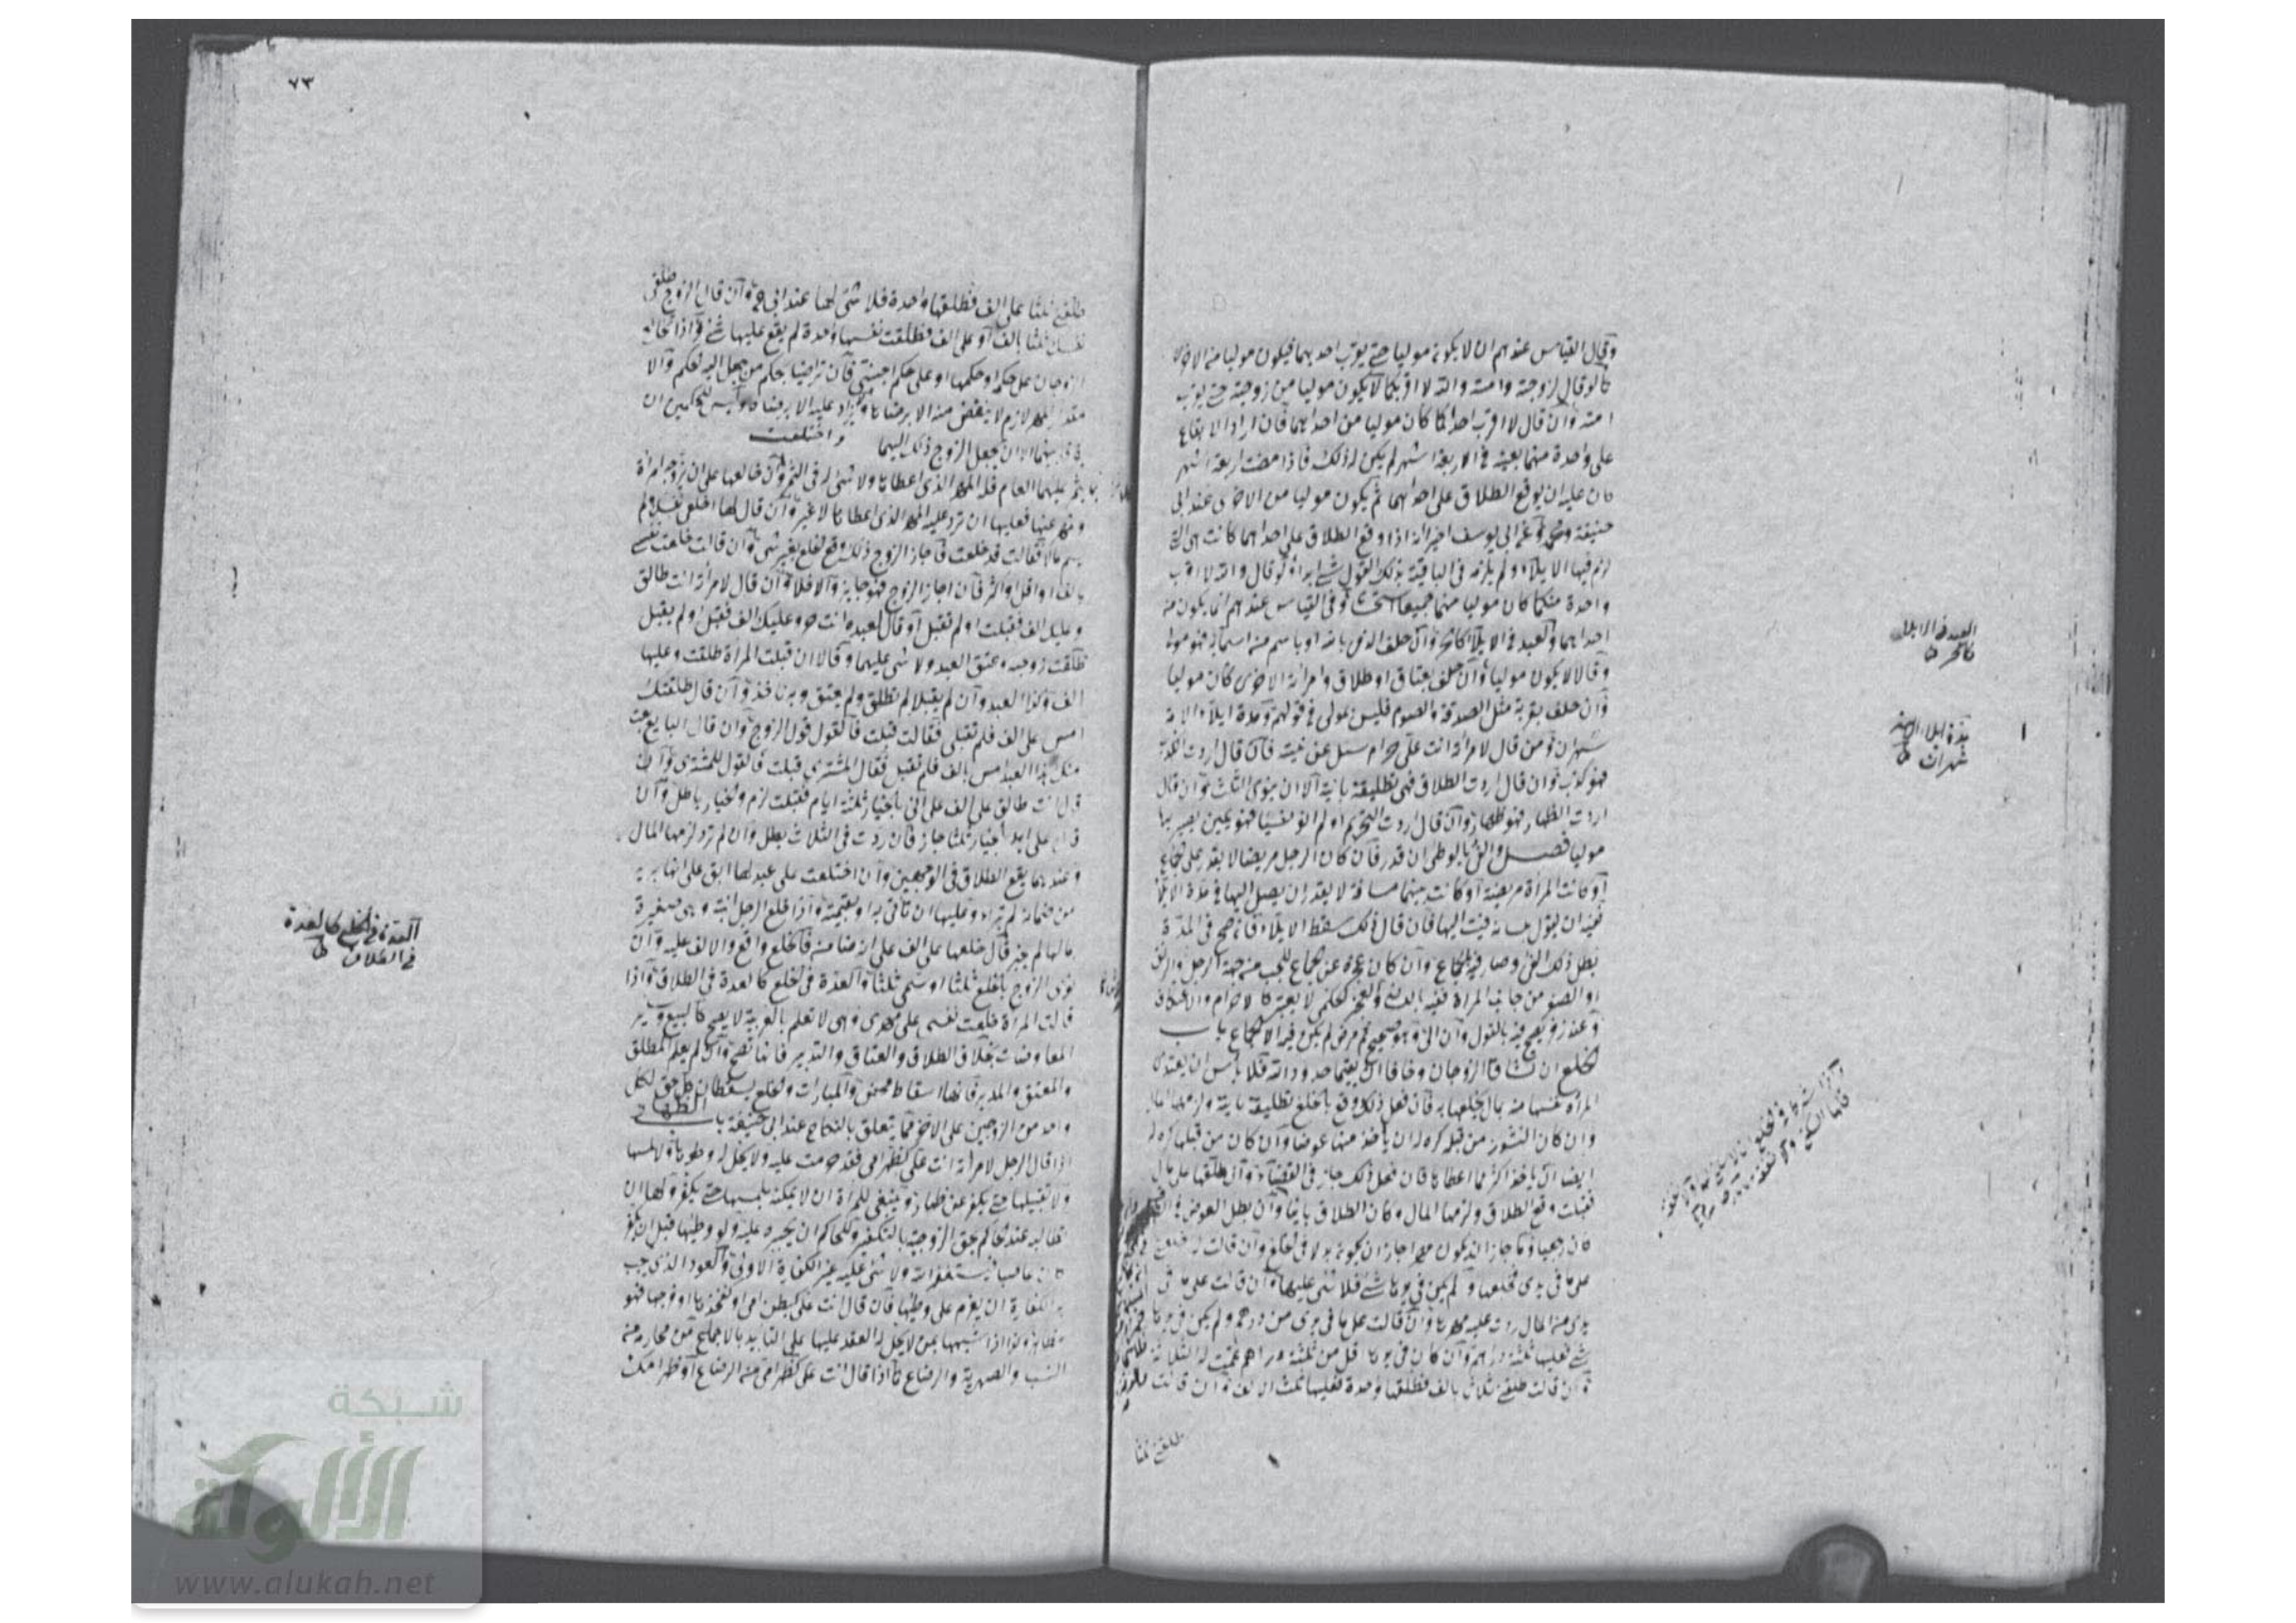 وقال القياس عندهم ان لا يكون موليا حتى يقرب احديهما فيكون موليا من الاخرى
كما لو قال لزوجته وامته والله لا اقربكما لا يكون موليا من زوجته حتى يقرب
امته وان قال لا اقرب احداكما كان موليا من احدايهما فان اراد الايقاع
على واحدة منهما بعينها في الاربعة اشهر لم يكن له ذلك فاذا مضت اربعة اشهر
كان عليه ان يوقع الطلاق على احدايهما ثم يكون موليا من الاخرى عند ابي
حنيفة ومحمد وعن ابي يوسف اخيرا انه اذا وقع الطلاق على احدايهما كانت هي التي
لزم فيها الايلاء ولم يلزمه في الباقية بذلك القول شيء ابدا ولو قال والله لا اقرب
واحدة منكما كان موليا منهما جميعا استحسانا وفي القياس عندهم انما يكون من
احدايهما والعبد في الايلاء كالحر وان حلف الذمي بالله او باسم من اسمائه فهو مول
وقالا لا يكون موليا وان حلف بعتاق او طلاق وامرأته الاخرى كان موليا
وان حلف بقربة مثل الصدقة والصوم فليس بمولى في قولهم ومدة ايلاء الامة
شهران ومن قال لامرأته انت علي حرام سئل عن نيته فان قال اردت الكذب
فهو كذب وان قال اردت الطلاق فهي تطليقة باينة الا ان ينوي الثلث وان قال
اردت الظهار فهو ظهار وان قال اردت التحريم او لم انو شيئا فهو يمين يصير بها
موليا فصل والفئ بالوطئ ان قدر فان كان الرجل مريضا لا يقدر على الجماع
او كانت المرأة مريضة او كانت بينهما مسافة لا يقدر ان يصل اليها في مدة الايلاء
ففيئه ان يقول بلسانه فئت اليها فان قال ذلك سقط الايلاء فان صح في المدة
بطل ذلك الفئ وصار فيئه الجماع وان كان عجزه عن الجماع للجب من جهة الرجل والرتق
او الصغر من جانب المرأة ففيئه باللسان والعجز الحكمي لا يعتبر كالاحرام والاعتكاف
وعند زفر يصح فيئه بالقول وان آلى وهو صحيح ثم مرض لم يكن فيئه الا الجماع باب
الخلع ان تشاق الزوجان وخافا ان لا يقيما حدود الله فلا بأس ان يفتدي
المرأة نفسها منه بمال يخلعها به فان فعل ذلك وقع بالخلع تطليقة باينة ولزمها المال
وان كان النشوز من قبله كره له ان يأخذ منها عوضا وان كان من قبلها كره له
ايضا ان يأخذ اكثر مما اعطاها فان فعل ذلك جاز في القضاء وان طلقها على مال
فقبلت وقع الطلاق ولزمها المال وكان الطلاق باينا وان بطل العوض في الخلع
كان رجعيا وما جاز ان يكون مهرا جاز ان يكون بدلا في الخلع وان قالت له خلعني
على ما في يدي فخلعها ولم يكن في يدها شئ فلا شئ عليها وان قالت على ما في
يدي من المال ردت عليه مهرها وان قالت على ما في يدي من دراهم ولم يكن في يدها
شئ فعليها ثلثة دراهم وان كان في يدها اقل من ثلثة دراهم تممت له الثلاثة
وان قالت طلقني ثلاثا بالف فطلقها واحدة فعليها ثلث الالف وان قالت
طلقني ثلثا
العبد في الايلاء
كالحر ط
مدة ايلاء الامة
شهران ط
٧٣
طلقني ثلثا على الف فطلقها واحدة فلا شئ لها عند ابي ح وان قال الزوج طلقي
نفسك ثلثا بالف او على الف فطلقت نفسها واحدة لم يقع عليها شئ واذا تخالع
الزوجان على حكمه او حكمها او على حكم اجنبي فان تراضيا بحكم من جعل اليه الحكم والا
مقدار المهر لازم لا ينقص منه الا برضاه ولا يزاد عليه الا برضاها وليس للحكمين ان
يفرقا بينهما الا ان يجعل الزوج ذلك اليهما واختلعت
يثمر عليهما العام فله المهر الذي اعطاها ولا شئ له في الثمر وان خالعها على ان يزوجه امرأة
ويمهر عنها فعليها ان ترد عليه المهر الذي اعطاها لا غير وان قال لها اخلعي نفسك ولم
يسم مالا فقالت قد خلعت فاجاز الزوج ذلك وقع الخلع بغير شئ وان قالت خلعت نفسي
بالف او اقل او اكثر فان اجاز الزوج فهو جايز والا فلا وان قال لامرأته انت طالق
وعليك الف فقبلت او لم تقبل او قال لعبده انت حر وعليك الف فقبل او لم يقبل
طلقت زوجته وعتق العبد ولا شئ عليهما وقالا ان قبلت المرأة طلقت وعليها
الف وكذا العبد وان لم يقبلا لم تطلق ولم يعتق وبه نأخذ وان قال طلقتك
امس على الف فلم تقبلي فقالت قبلت فالقول قول الزوج وان قال البايع بعت
منك هذا العبد امس بالف فلم تقبل فقال المشتري قبلت فالقول للمشتري وان
قال انت طالق على الف على اني بالخيار ثلثة ايام فقبلت لزم والخيار باطل وان
قال على انك بالخيار ثلثا جاز فان ردت في الثلاث بطل وان لم ترد لزمها المال
وعندهما يقع الطلاق في الوجهين وان اختلعت على عبد لها ابق على انها بريئة
من ضمانه لم تبرأ وعليها ان تأتي به او بقيمته واذا خلع الرجل ابنته وهي صغيرة
بمالها لم يجز وان خلعها على الف على انه ضامنه فالخلع واقع والالف عليه وان
نوى الزوج بالخلع ثلثا او سمى ثلثا والعدة في الخلع كالعدة في الطلاق واذا
قالت المرأة خلعت نفسي على مهري وهي لا تعلم بالعربية لا يصح كالبيع وسائر
المعاوضات بخلاف الطلاق والعتاق والتدبير فانها تصح وان لم يعلم المطلق
والمعتق والمدبر فانها اسقاط محض والمبارات والخلع يسقطان كل حق لكل
واحد من الزوجين على الاخر مما يتعلق بالنكاح عند ابي حنيفة باب الظهار
اذا قال الرجل لامرأته انت علي كظهر امي فقد حرمت عليه ولا يحل له وطؤها ولا لمسها
ولا تقبيلها حتى يكفر عن ظهاره وينبغي للمرأة ان لا تمكنه بلمسها حتى يكفر ولها ان
تطالبه عند الحاكم بحق الزوجية بالتكفير وللحاكم ان يجبره عليه ولو وطئها قبل ان يكفر
كان عاصيا يستغفر الله ولا شئ عليه غير الكفارة الاولى والعود الذي يجب
به الكفارة ان يعزم على وطئها فان قال انت علي كبطن امي او كفخذها او فرجها فهو
مظاهر وكذا اذا شبهها بمن لا يحل له العقد عليها على التأبيد بالاجماع من محارمه من
النسب والصهرية والرضاع كما اذا قال انت علي كظهر امي من الرضاع او ظهر امك
العدة في الخلع كالعدة
في الطلاق ط
شبكة
الألوكة
www.alukah.net